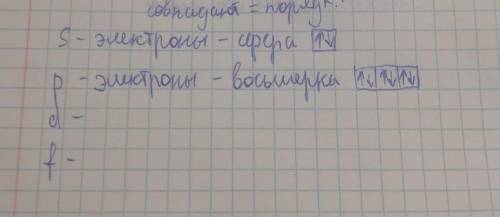 совпадает = поряд.
S - электроны - сфера ↑↓
p - электроны - восьмерка ↑↓ ↑↓ ↑↓
d -
f -